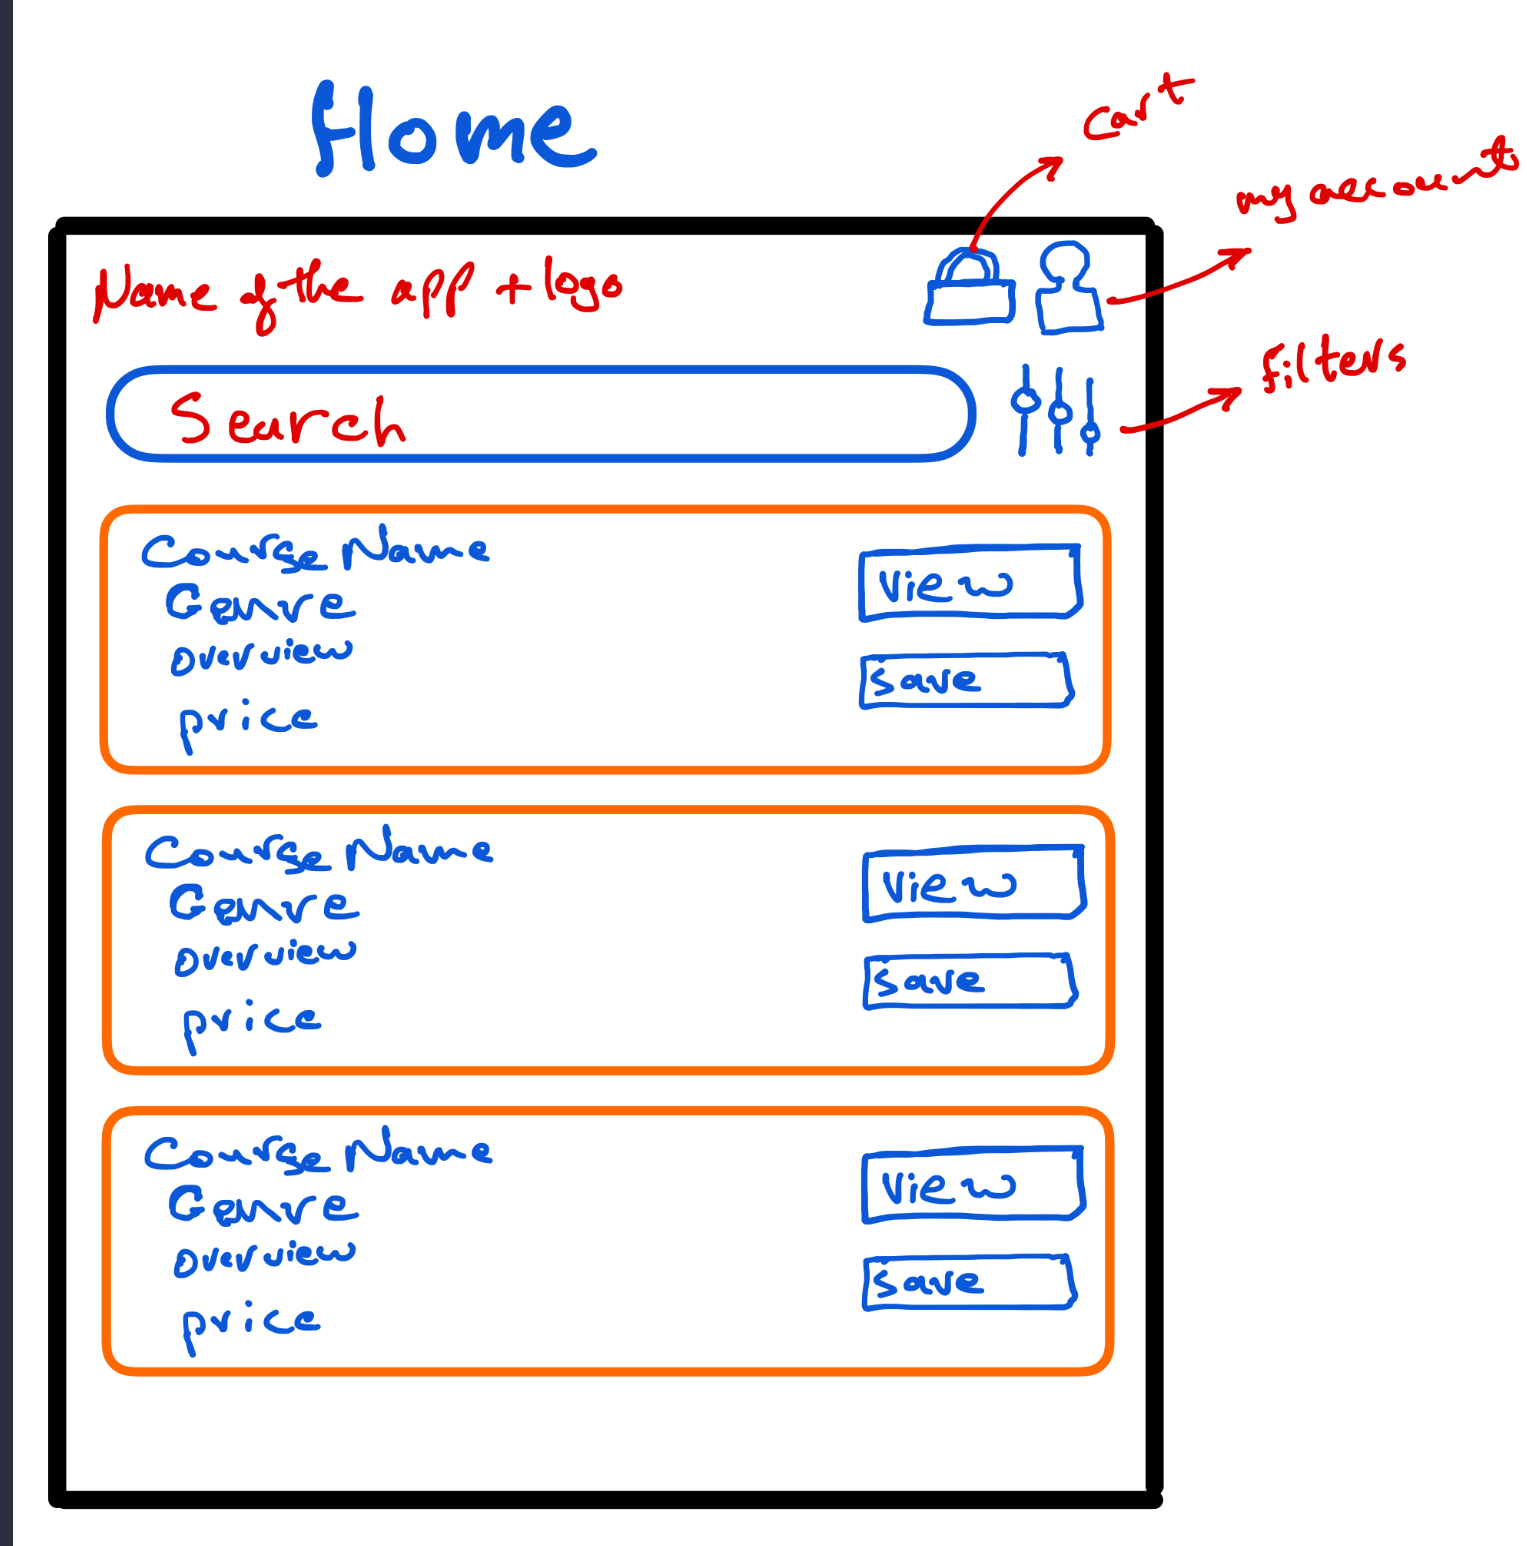 Home
cart
my account
Name of the app + logo
Search
filters
Course Name
Genre
overview
price
View
Save
Course Name
Genre
overview
price
View
Save
Course Name
Genre
overview
price
View
Save